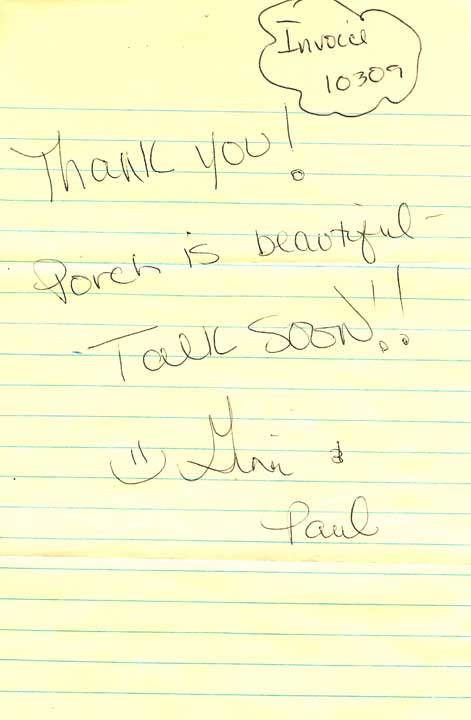 Invoice
10309
Thank you!
Porch is beautiful -
Talk soon!!
Gini &
Paul